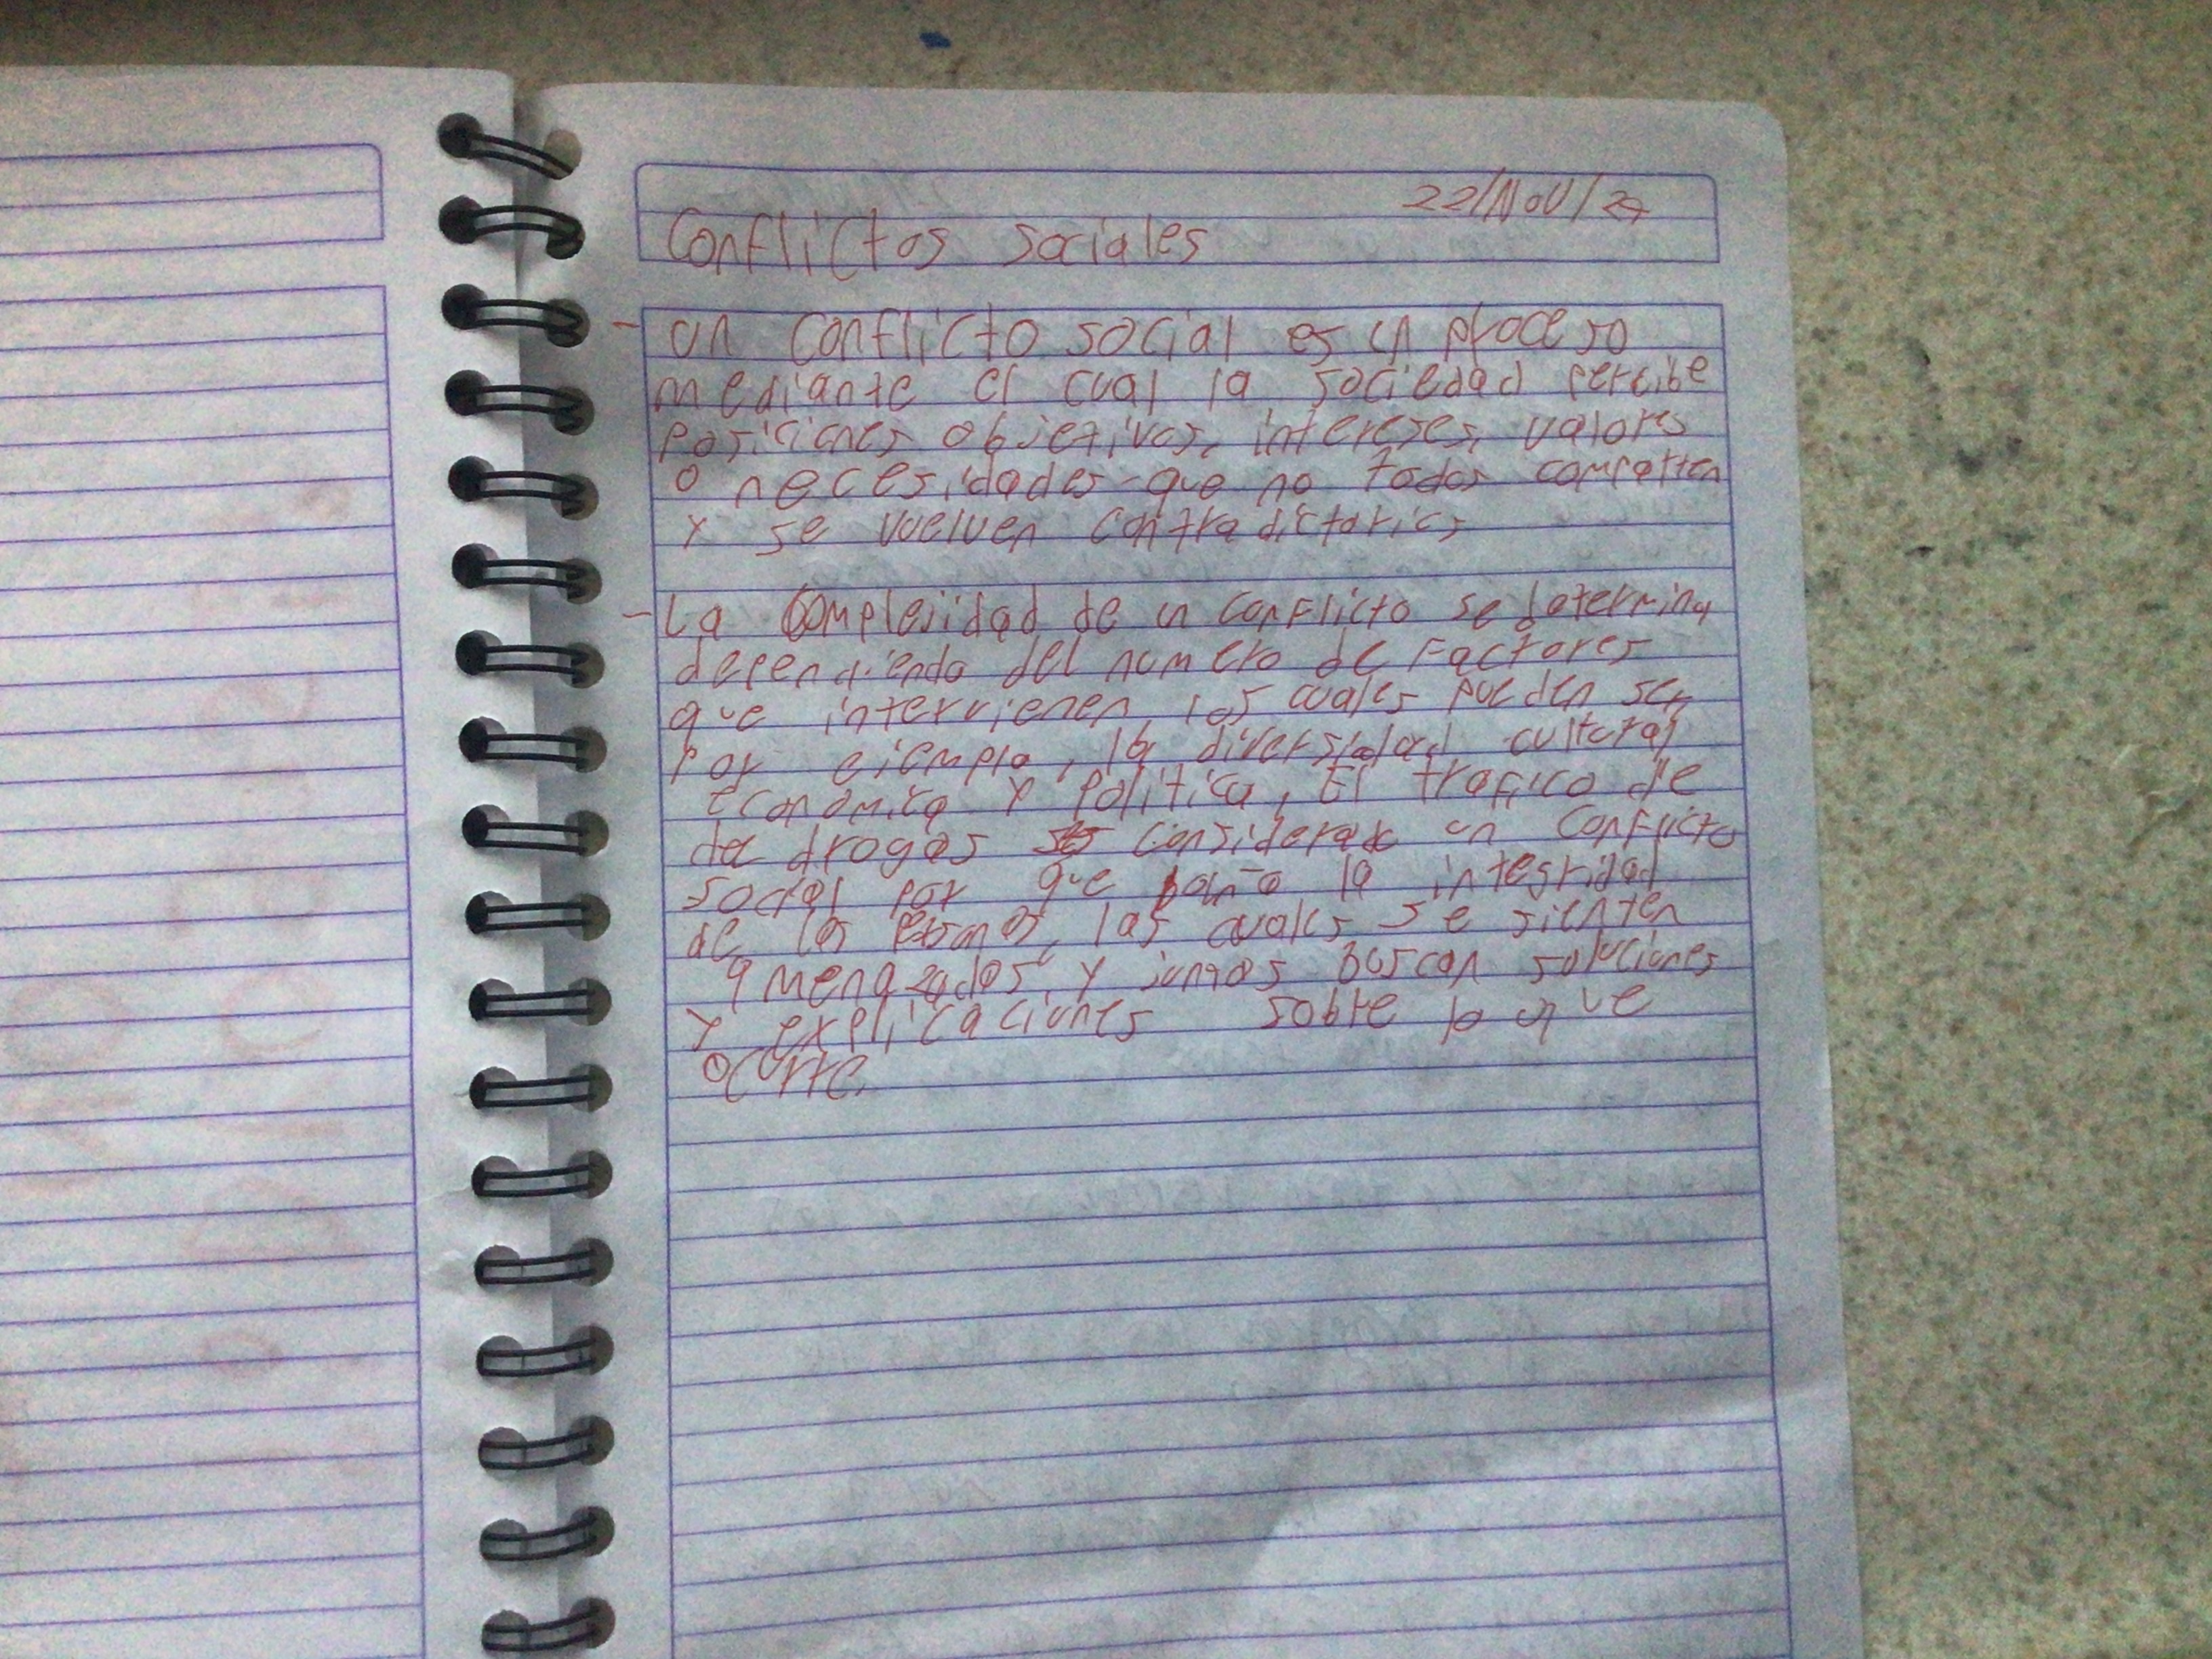 22/Nov/27
Conflictos sociales
- un conflicto social es un proceso
mediante el cual la sociedad percibe
posiciones objetivos, intereses, valores
o necesidades que no todos comparten
y se vuelven contradictorios
- La complejidad de un conflicto se determina
dependiendo del numero de factores
que intervienen los cuales pueden ser,
por ejemplo, la diversidad cultural
económica y política, El trafico de
de drogas es considerado un conflicto
social por que daña la integridad
de las personas, las cuales se sienten
amenazados, y juntos buscan soluciones
y explicaciones sobre lo que
ocurre.